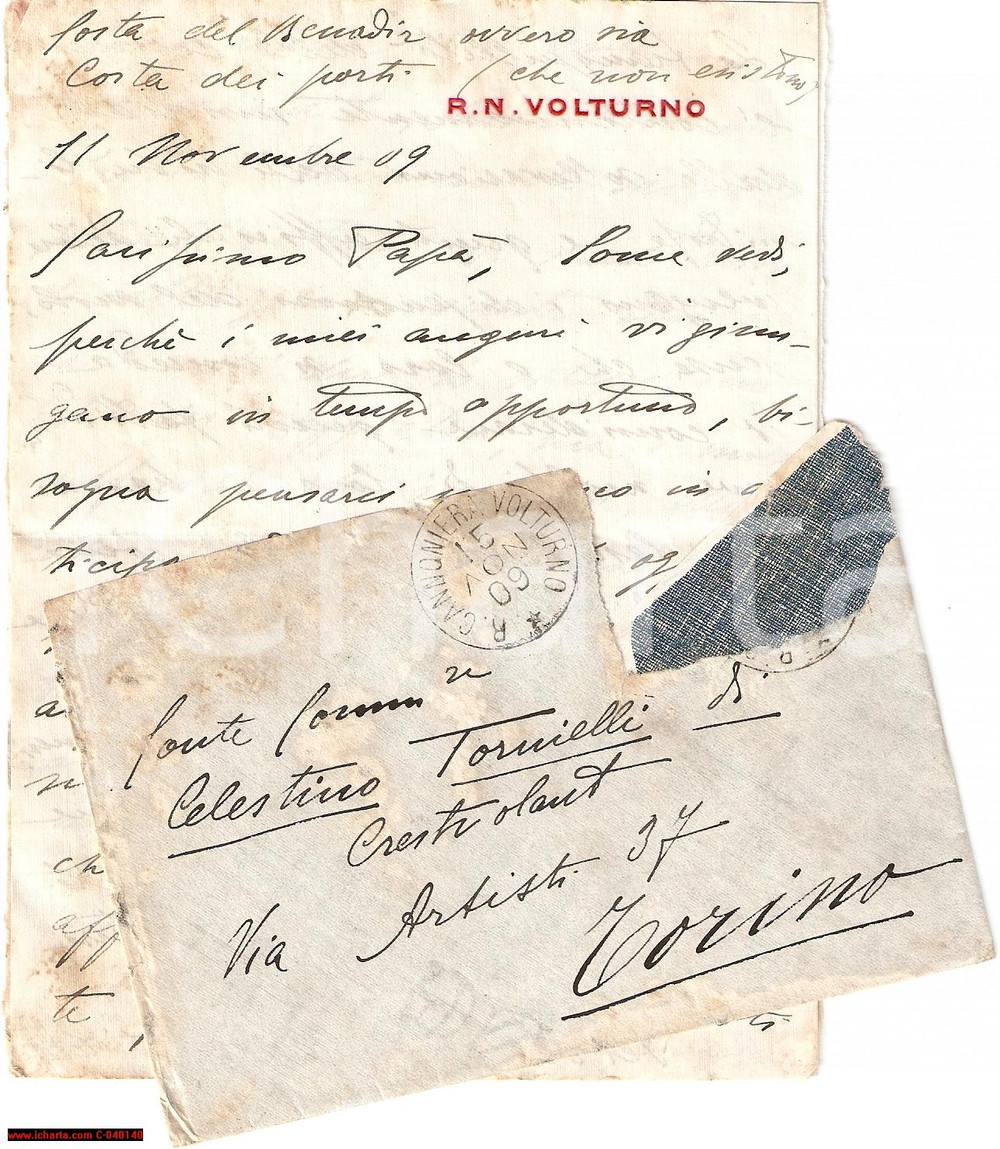 Costa del Benadir ovvero sia
Costa dei porti (che non esistono)
R.N. VOLTURNO
11 Novembre 09
Carissimo Papà, Come vedi,
perchè i miei auguri vi giun-
gano in tempo opportuno, bi-
sogna pensarci in
ticipo
a
ch
aff
te,
R. CANNONIERA VOLTURNO
15
NOV
09
Conte Comm re
Celestino Tornielli di
Crestvolant
Via Artisti 37
Torino
www.icharta.com C-040140